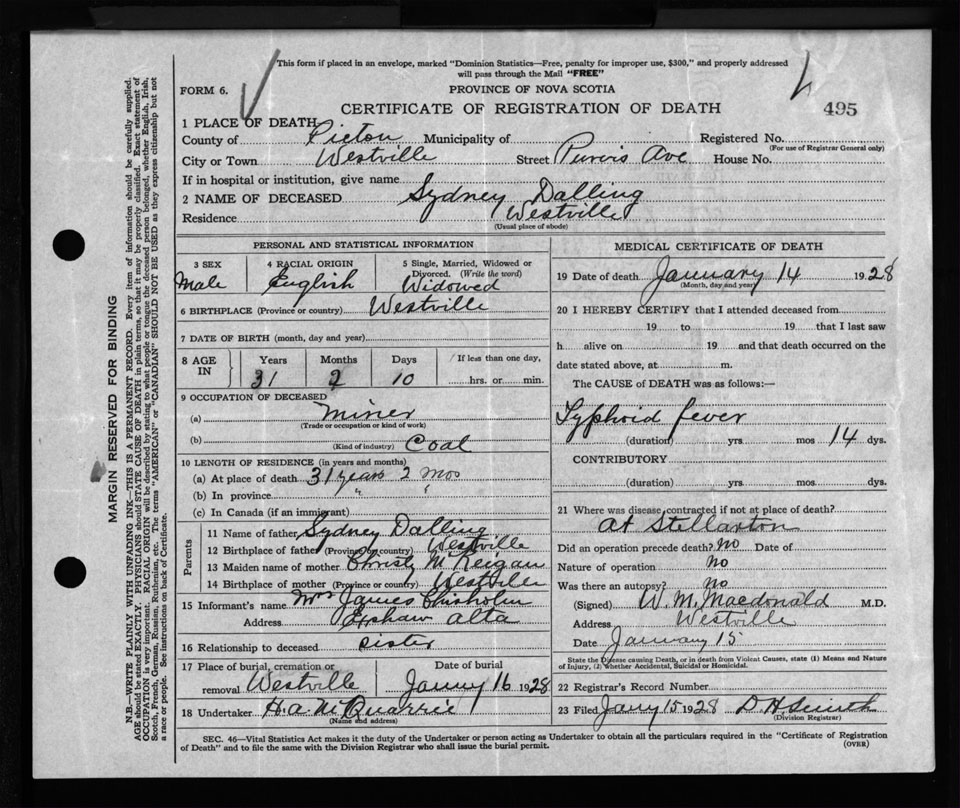 This form if placed in an envelope, marked "Dominion Statistics—Free, penalty for improper use, $300," and properly addressed
will pass through the Mail "FREE"
FORM 6.
PROVINCE OF NOVA SCOTIA
CERTIFICATE OF REGISTRATION OF DEATH
495
1 PLACE OF DEATH
County of Pictou Municipality of Registered No.
(For use of Registrar General only)
City or Town Westville Street Purvis Ave House No.
If in hospital or institution, give name
2 NAME OF DECEASED Sydney Dalling
Residence Westville
(Usual place of abode)
PERSONAL AND STATISTICAL INFORMATION
3 SEX 4 RACIAL ORIGIN 5 Single, Married, Widowed or
Divorced. (Write the word)
Male English Widowed
6 BIRTHPLACE (Province or country) Westville
7 DATE OF BIRTH (month, day and year)
8 AGE IN Years Months Days If less than one day,
31 2 10 hrs. or min.
9 OCCUPATION OF DECEASED
(a) Miner
(Trade or occupation or kind of work)
(b) Coal
(Kind of industry)
10 LENGTH OF RESIDENCE (in years and months)
(a) At place of death 31 years 2 mos
(b) In province " "
(c) In Canada (if an immigrant)
Parents
11 Name of father Sydney Dalling
12 Birthplace of father (Province or country) Westville
13 Maiden name of mother Christy
14 Birthplace of mother (Province or country) Westville
15 Informant's name Mrs James Chisholm
Address alta
16 Relationship to deceased sister
17 Place of burial, cremation or Date of burial
removal Westville 16 1928
18 Undertaker H.A. McQuarrie
(Name and address)
MEDICAL CERTIFICATE OF DEATH
19 Date of death January 14 1928
(Month, day and year)
20 I HEREBY CERTIFY that I attended deceased from
19 to 19 that I last saw
h alive on 19 and that death occurred on the
date stated above, at m.
The CAUSE of DEATH was as follows:—
Typhoid fever
(duration) yrs. mos 14 dys.
CONTRIBUTORY
(duration) yrs. mos dys.
21 Where was disease contracted if not at place of death?
at Stellarton
Did an operation precede death? no Date of
Nature of operation no
Was there an autopsy? no
(Signed) W. M. Macdonald M.D.
Address Westville
Date January 15
State the Disease causing Death, or in death from Violent Causes, state (1) Means and Nature
of Injury, (2) whether Accidental, Suicidal or Homicidal.
22 Registrar's Record Number
23 Filed 15 1928 D H Smith
(Division Registrar)
SEC. 46—Vital Statistics Act makes it the duty of the Undertaker or person acting as Undertaker to obtain all the particulars required in the "Certificate of Registration
of Death" and to file the same with the Division Registrar who shall issue the burial permit.
(OVER)
MARGIN RESERVED FOR BINDING
N.B.—WRITE PLAINLY WITH UNFADING INK—THIS IS A PERMANENT RECORD. Every item of information should be carefully supplied.
AGE should be stated EXACTLY. PHYSICIANS should STATE CAUSE OF DEATH in plain terms, so that it may be properly classified. Exact statement of
OCCUPATION is very important. RACIAL ORIGIN will be described by stating to what people or tongue the deceased person belonged, whether English, Irish,
Scotch, French, German, Russian, Ruthenian, etc. The terms "AMERICAN" or "CANADIAN" SHOULD NOT BE USED as they express citizenship but not
a race or people. See instructions on back of Certificate.